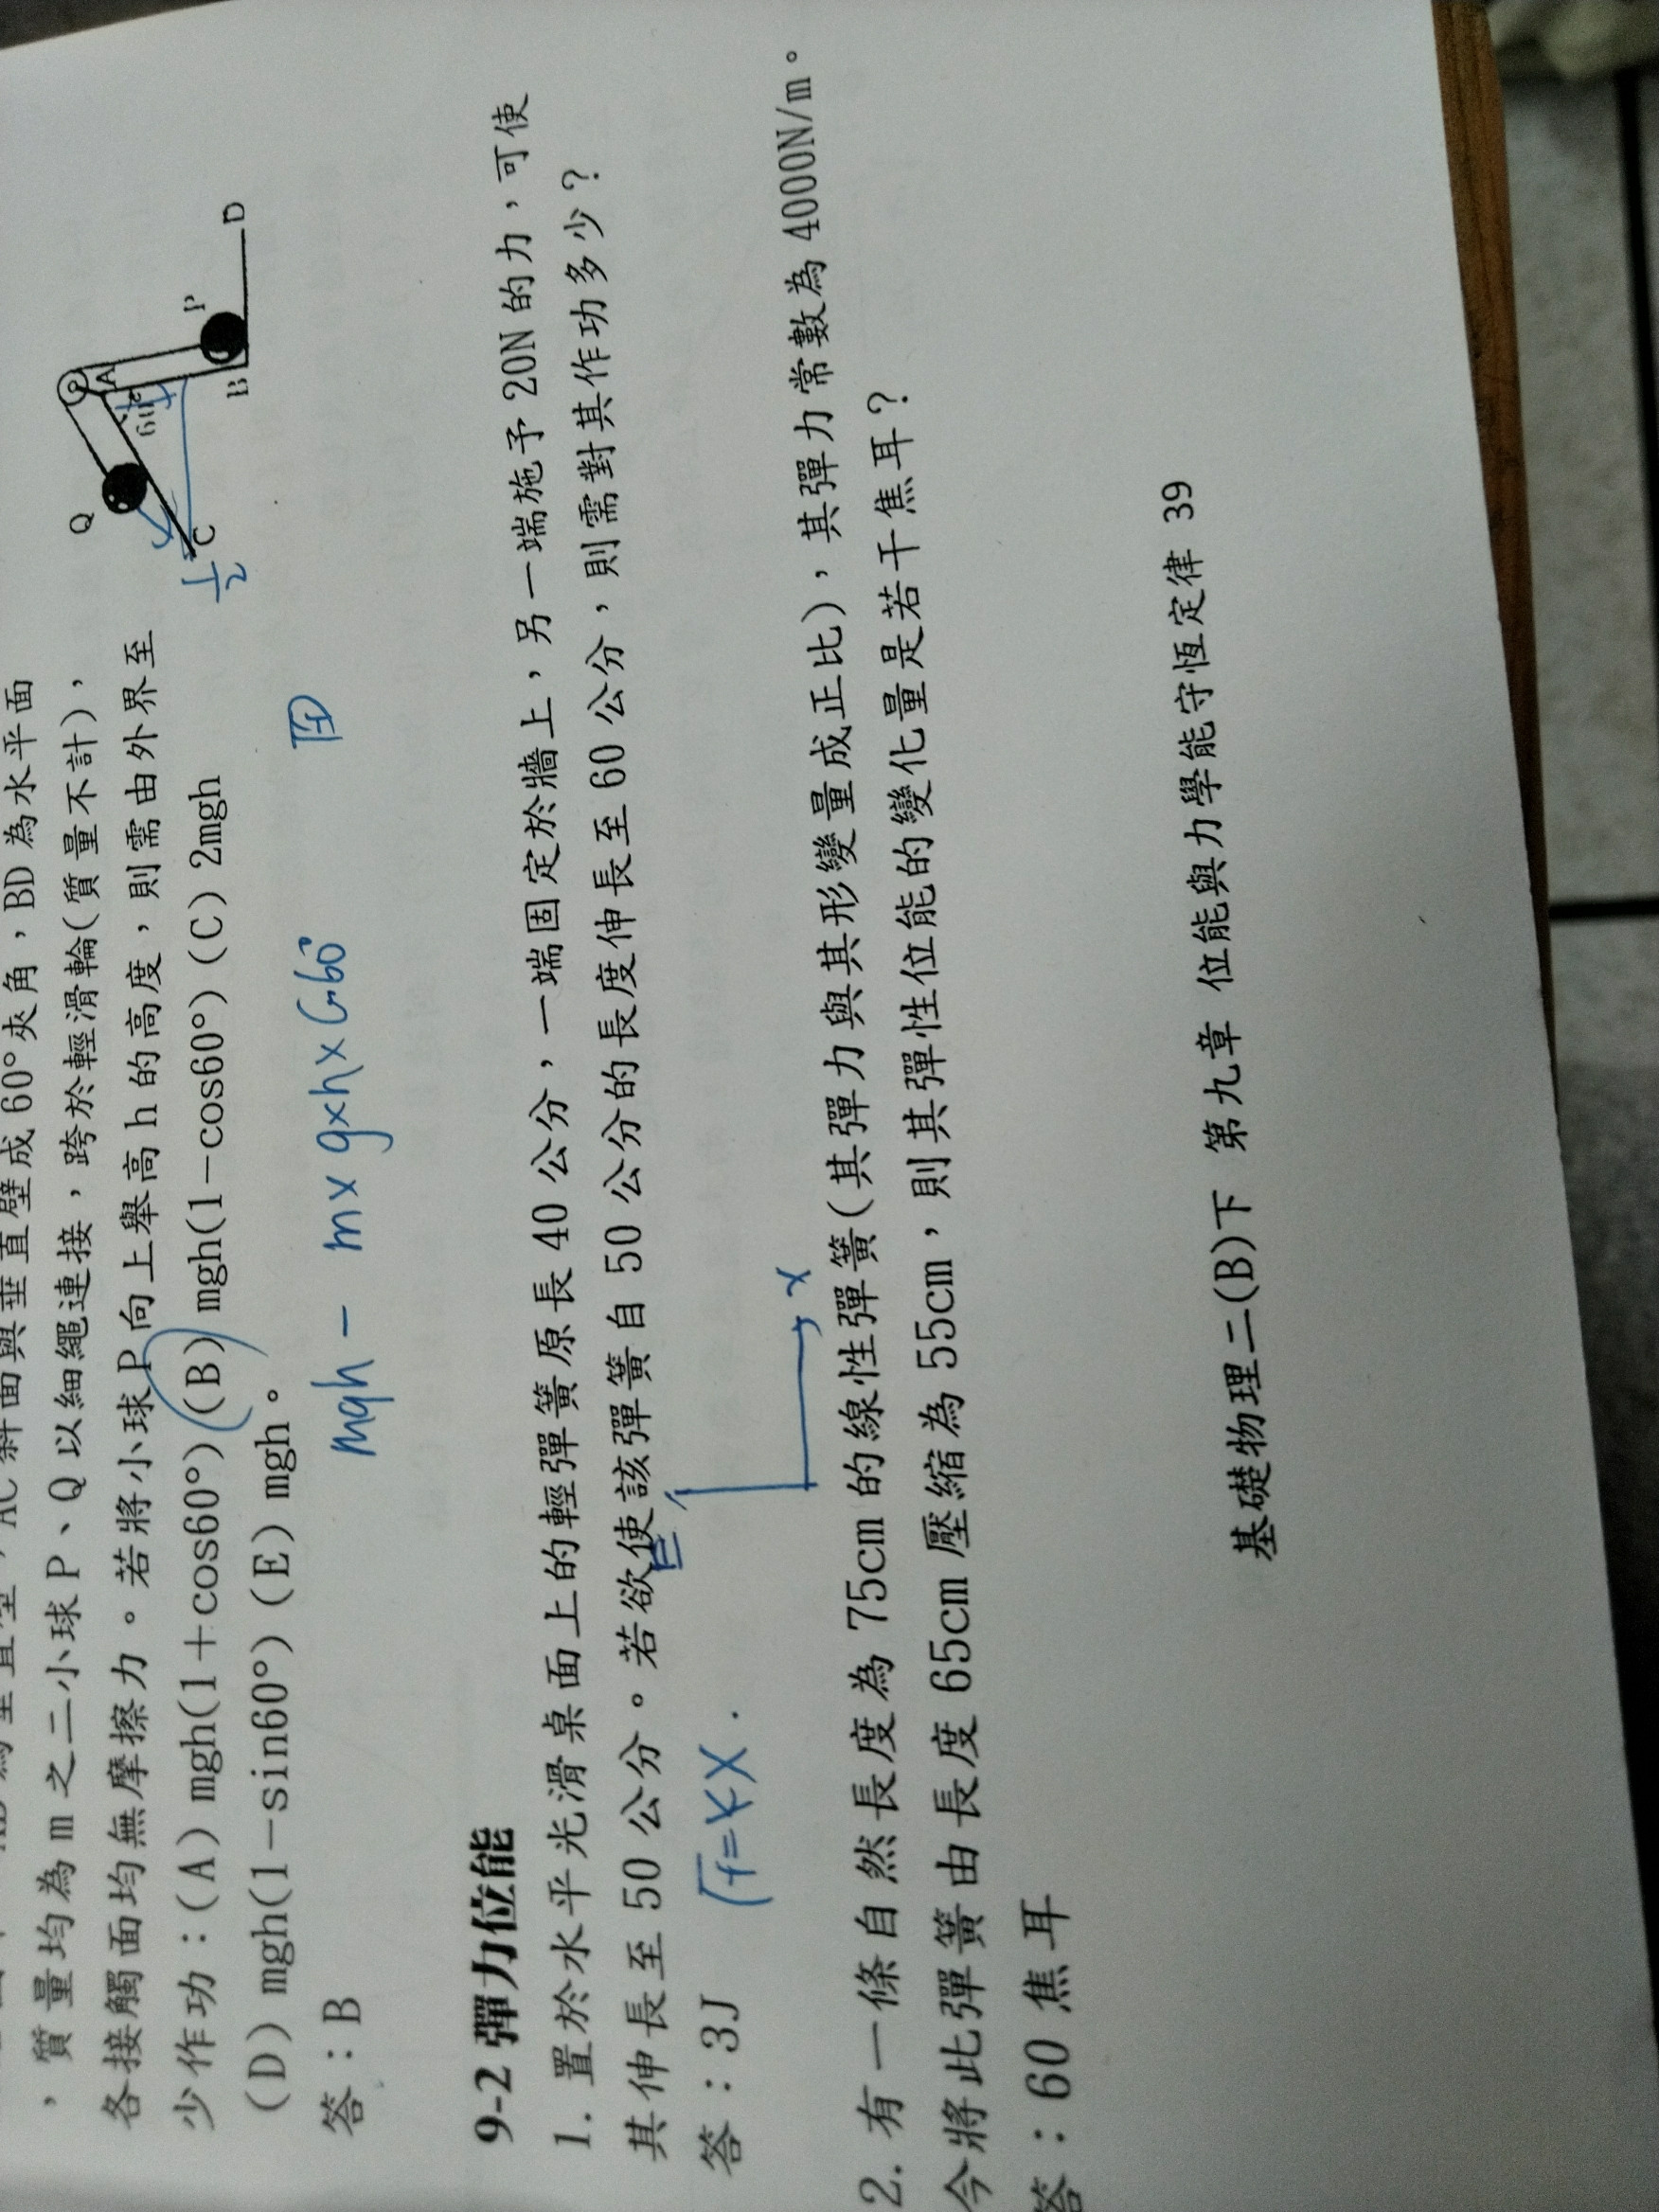 ，BD 為水平面
，質量均為 m 之二小球 P、Q 以細繩連接，跨於輕滑輪(質量不計)，
各接觸面均無摩擦力。若將小球 P 向上舉高 h 的高度，則需由外界至
少作功：(A) mgh(1＋cos60°) (B) mgh(1－cos60°) (C) 2mgh
(D) mgh(1－sin60°) (E) mgh。
Q
A
60°
P
C
B
D
1/2
答：B
mgh － m×g×h×cos60°
9-2 彈力位能
1. 置於水平光滑桌面上的輕彈簧原長 40 公分，一端固定於牆上，另一端施予 20N 的力，可使
其伸長至 50 公分。若欲使該彈簧自 50 公分的長度伸長至 60 公分，則需對其作功多少？
答：3J
f=KX
x
2. 有一條自然長度為 75cm 的線性彈簧(其彈力與其形變量成正比)，其彈力常數為 4000N/m。
今將此彈簧由長度 65cm 壓縮為 55cm，則其彈性位能的變化量是若干焦耳？
答：60 焦耳
基礎物理二(B)下 第九章 位能與力學能守恆定律 39